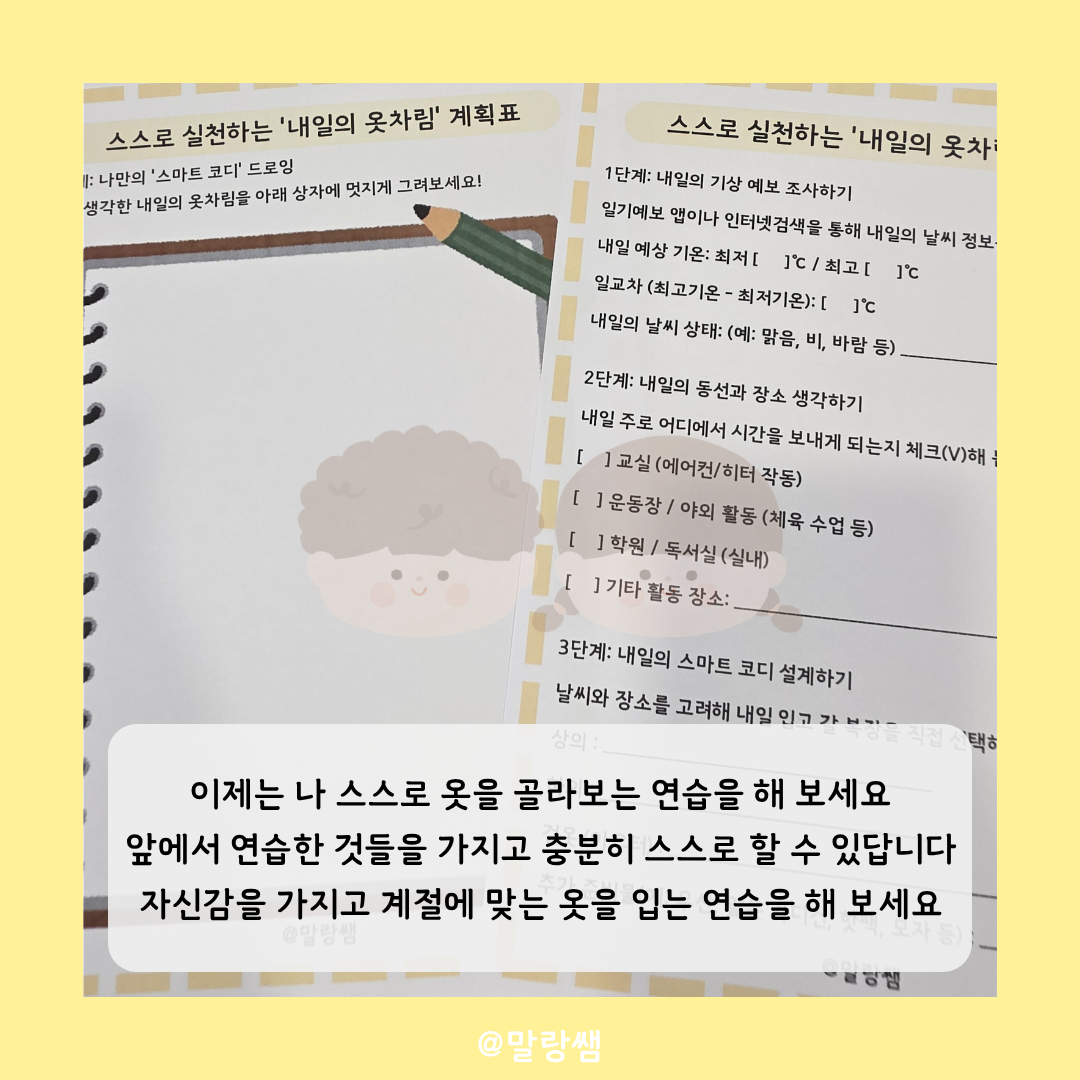 스스로 실천하는 '내일의 옷차림' 계획표
나만의 '스마트 코디' 드로잉
생각한 내일의 옷차림을 아래 상자에 멋지게 그려보세요!
@말랑쌤
스스로 실천하는 '내일의
1단계: 내일의 기상 예보 조사하기
일기예보 앱이나 인터넷검색을 통해 내일의 날씨 정보
내일 예상 기온: 최저 [ ]℃ / 최고 [ ]℃
일교차 (최고기온 - 최저기온): [ ]℃
내일의 날씨 상태: (예: 맑음, 비, 바람 등) ____________
2단계: 내일의 동선과 장소 생각하기
내일 주로 어디에서 시간을 보내게 되는지 체크(V)해
[ ] 교실 (에어컨/히터 작동)
[ ] 운동장 / 야외 활동 (체육 수업 등)
[ ] 학원 / 독서실 (실내)
[ ] 기타 활동 장소: ____________
3단계: 내일의 스마트 코디 설계하기
날씨와 장소를 고려해 내일 입고 갈 복장을 직접
상의 : ____________
@말랑쌤
이제는 나 스스로 옷을 골라보는 연습을 해 보세요
앞에서 연습한 것들을 가지고 충분히 스스로 할 수 있답니다
자신감을 가지고 계절에 맞는 옷을 입는 연습을 해 보세요
@말랑쌤